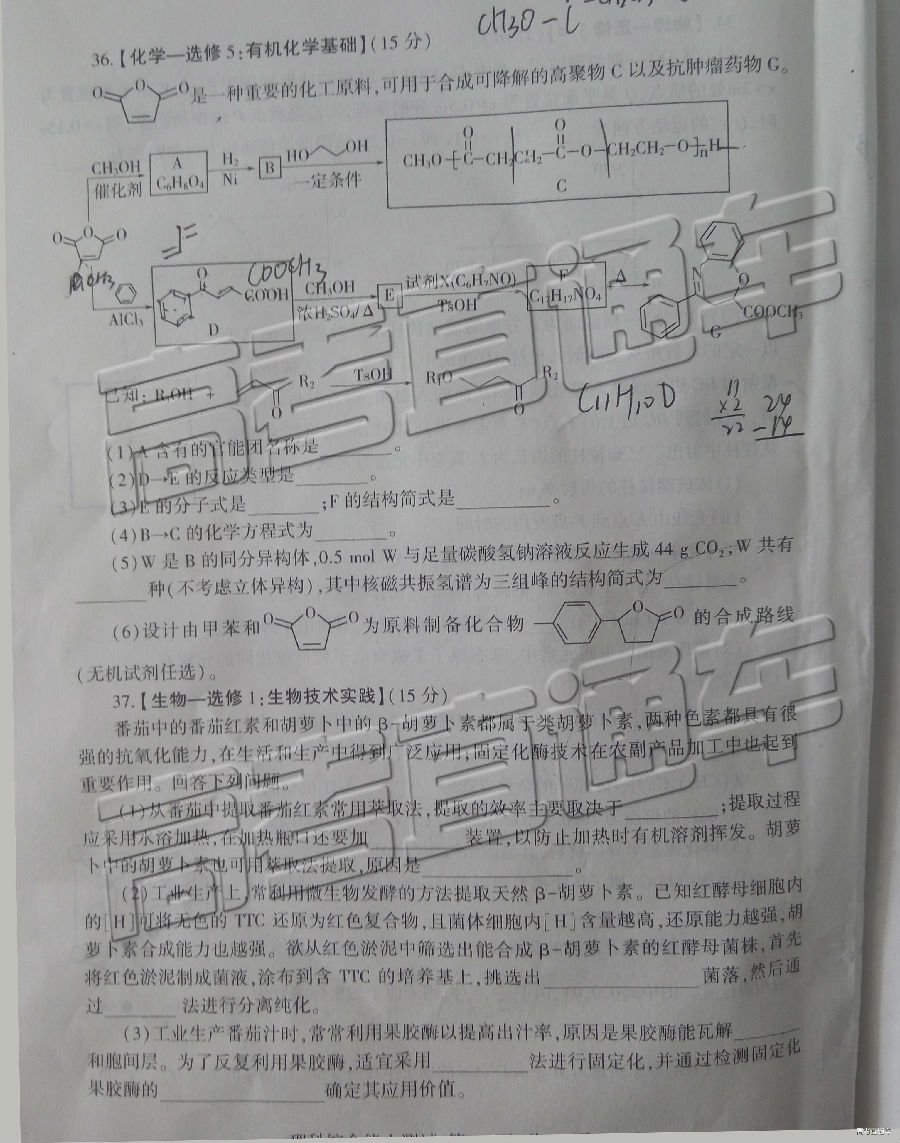 CH3O-C
36.【化学—选修5:有机化学基础】(15分)
是一种重要的化工原料,可用于合成可降解的高聚物C以及抗肿瘤药物G。
CH3OH 催化剂 A C6H8O4 H2 Ni B HO OH 一定条件 CH3O-[C-CH2CH2-C-O-CH2CH2-O]nH C
AlCl3 D COOH COOCH3 CH3OH 浓H2SO4/Δ E 试剂X(C6H7NO) TsOH F C17H17NO4 Δ N O COOCH3 G
已知: R1OH + R2 O TsOH R1O R2 O
C11H10O
11 ×2 22 24 -14
(1)A含有的官能团名称是________。
(2)D→E的反应类型是________。
(3)E的分子式是________;F的结构简式是________。
(4)B→C的化学方程式为________。
(5)W是B的同分异构体,0.5 mol W与足量碳酸氢钠溶液反应生成44 g CO2,W共有
________种(不考虑立体异构),其中核磁共振氢谱为三组峰的结构简式为________。
(6)设计由甲苯和 为原料制备化合物 的合成路线
(无机试剂任选)。
37.【生物—选修1:生物技术实践】(15分)
番茄中的番茄红素和胡萝卜中的β-胡萝卜素都属于类胡萝卜素,两种色素都具有很
强的抗氧化能力,在生活和生产中得到广泛应用;固定化酶技术在农副产品加工中也起到
重要作用。回答下列问题。
(1)从番茄中提取番茄红素常用萃取法,提取的效率主要取决于________;提取过程
应采用水浴加热,在加热瓶口还要加________装置,以防止加热时有机溶剂挥发。胡萝
卜中的胡萝卜素也可用萃取法提取,原因是________。
(2)工业生产上,常利用微生物发酵的方法提取天然β-胡萝卜素。已知红酵母细胞内
的[H]可将无色的TTC还原为红色复合物,且菌体细胞内[H]含量越高,还原能力越强,胡
萝卜素合成能力也越强。欲从红色淤泥中筛选出能合成β-胡萝卜素的红酵母菌株,首先
将红色淤泥制成菌液,涂布到含TTC的培养基上,挑选出________菌落,然后通
过________法进行分离纯化。
(3)工业生产番茄汁时,常常利用果胶酶以提高出汁率,原因是果胶酶能瓦解________
和胞间层。为了反复利用果胶酶,适宜采用________法进行固定化,并通过检测固定化
果胶酶的________确定其应用价值。
高考直通车
高考直通车